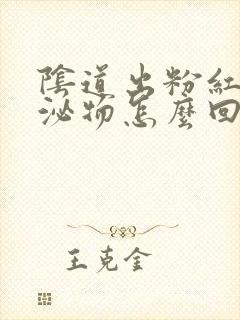 陰道出粉紅
泌物怎麼回
王克金